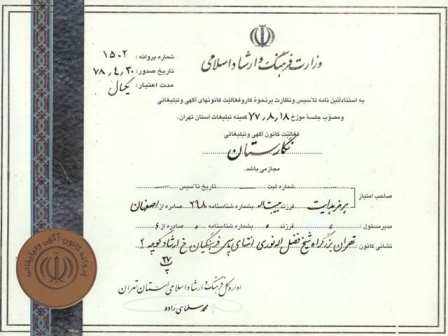 وزارت فرهنگ و ارشاد اسلامی
شماره پروانه : ۱۵۰۲
تاریخ صدور : ۷۸,۴,۳۰
مدت اعتبار : یکسال
به استناد آئین نامه تأسیس و نظارت بر نحوه کار و فعالیت کانونهای آگهی و تبلیغاتی
و مصوب جلسه مورخ ۷۷,۸,۱۸ کمیته تبلیغات استان تهران.
فعالیت کانون آگهی و تبلیغاتی
نگارستان
مجاز می باشد.
شماره ثبت تاریخ تأسیس
صاحب امتیاز هرمز بدایت فرزند حبیب اله بشماره شناسنامه ۲۶۸ صادره از اصفهان
مدیر مسئول فرزند بشماره شناسنامه صادره از
نشانی کانون: تهران بزرگراه شیخ فضل اله نوری انتهای پاس فرهنگیان خ ارشاد کوچه ۲
پ ۲۷
اداره کل فرهنگ و ارشاد اسلامی استان تهران
محمد سلماسی زاده
پروانه کانون آگهی و تبلیغاتی